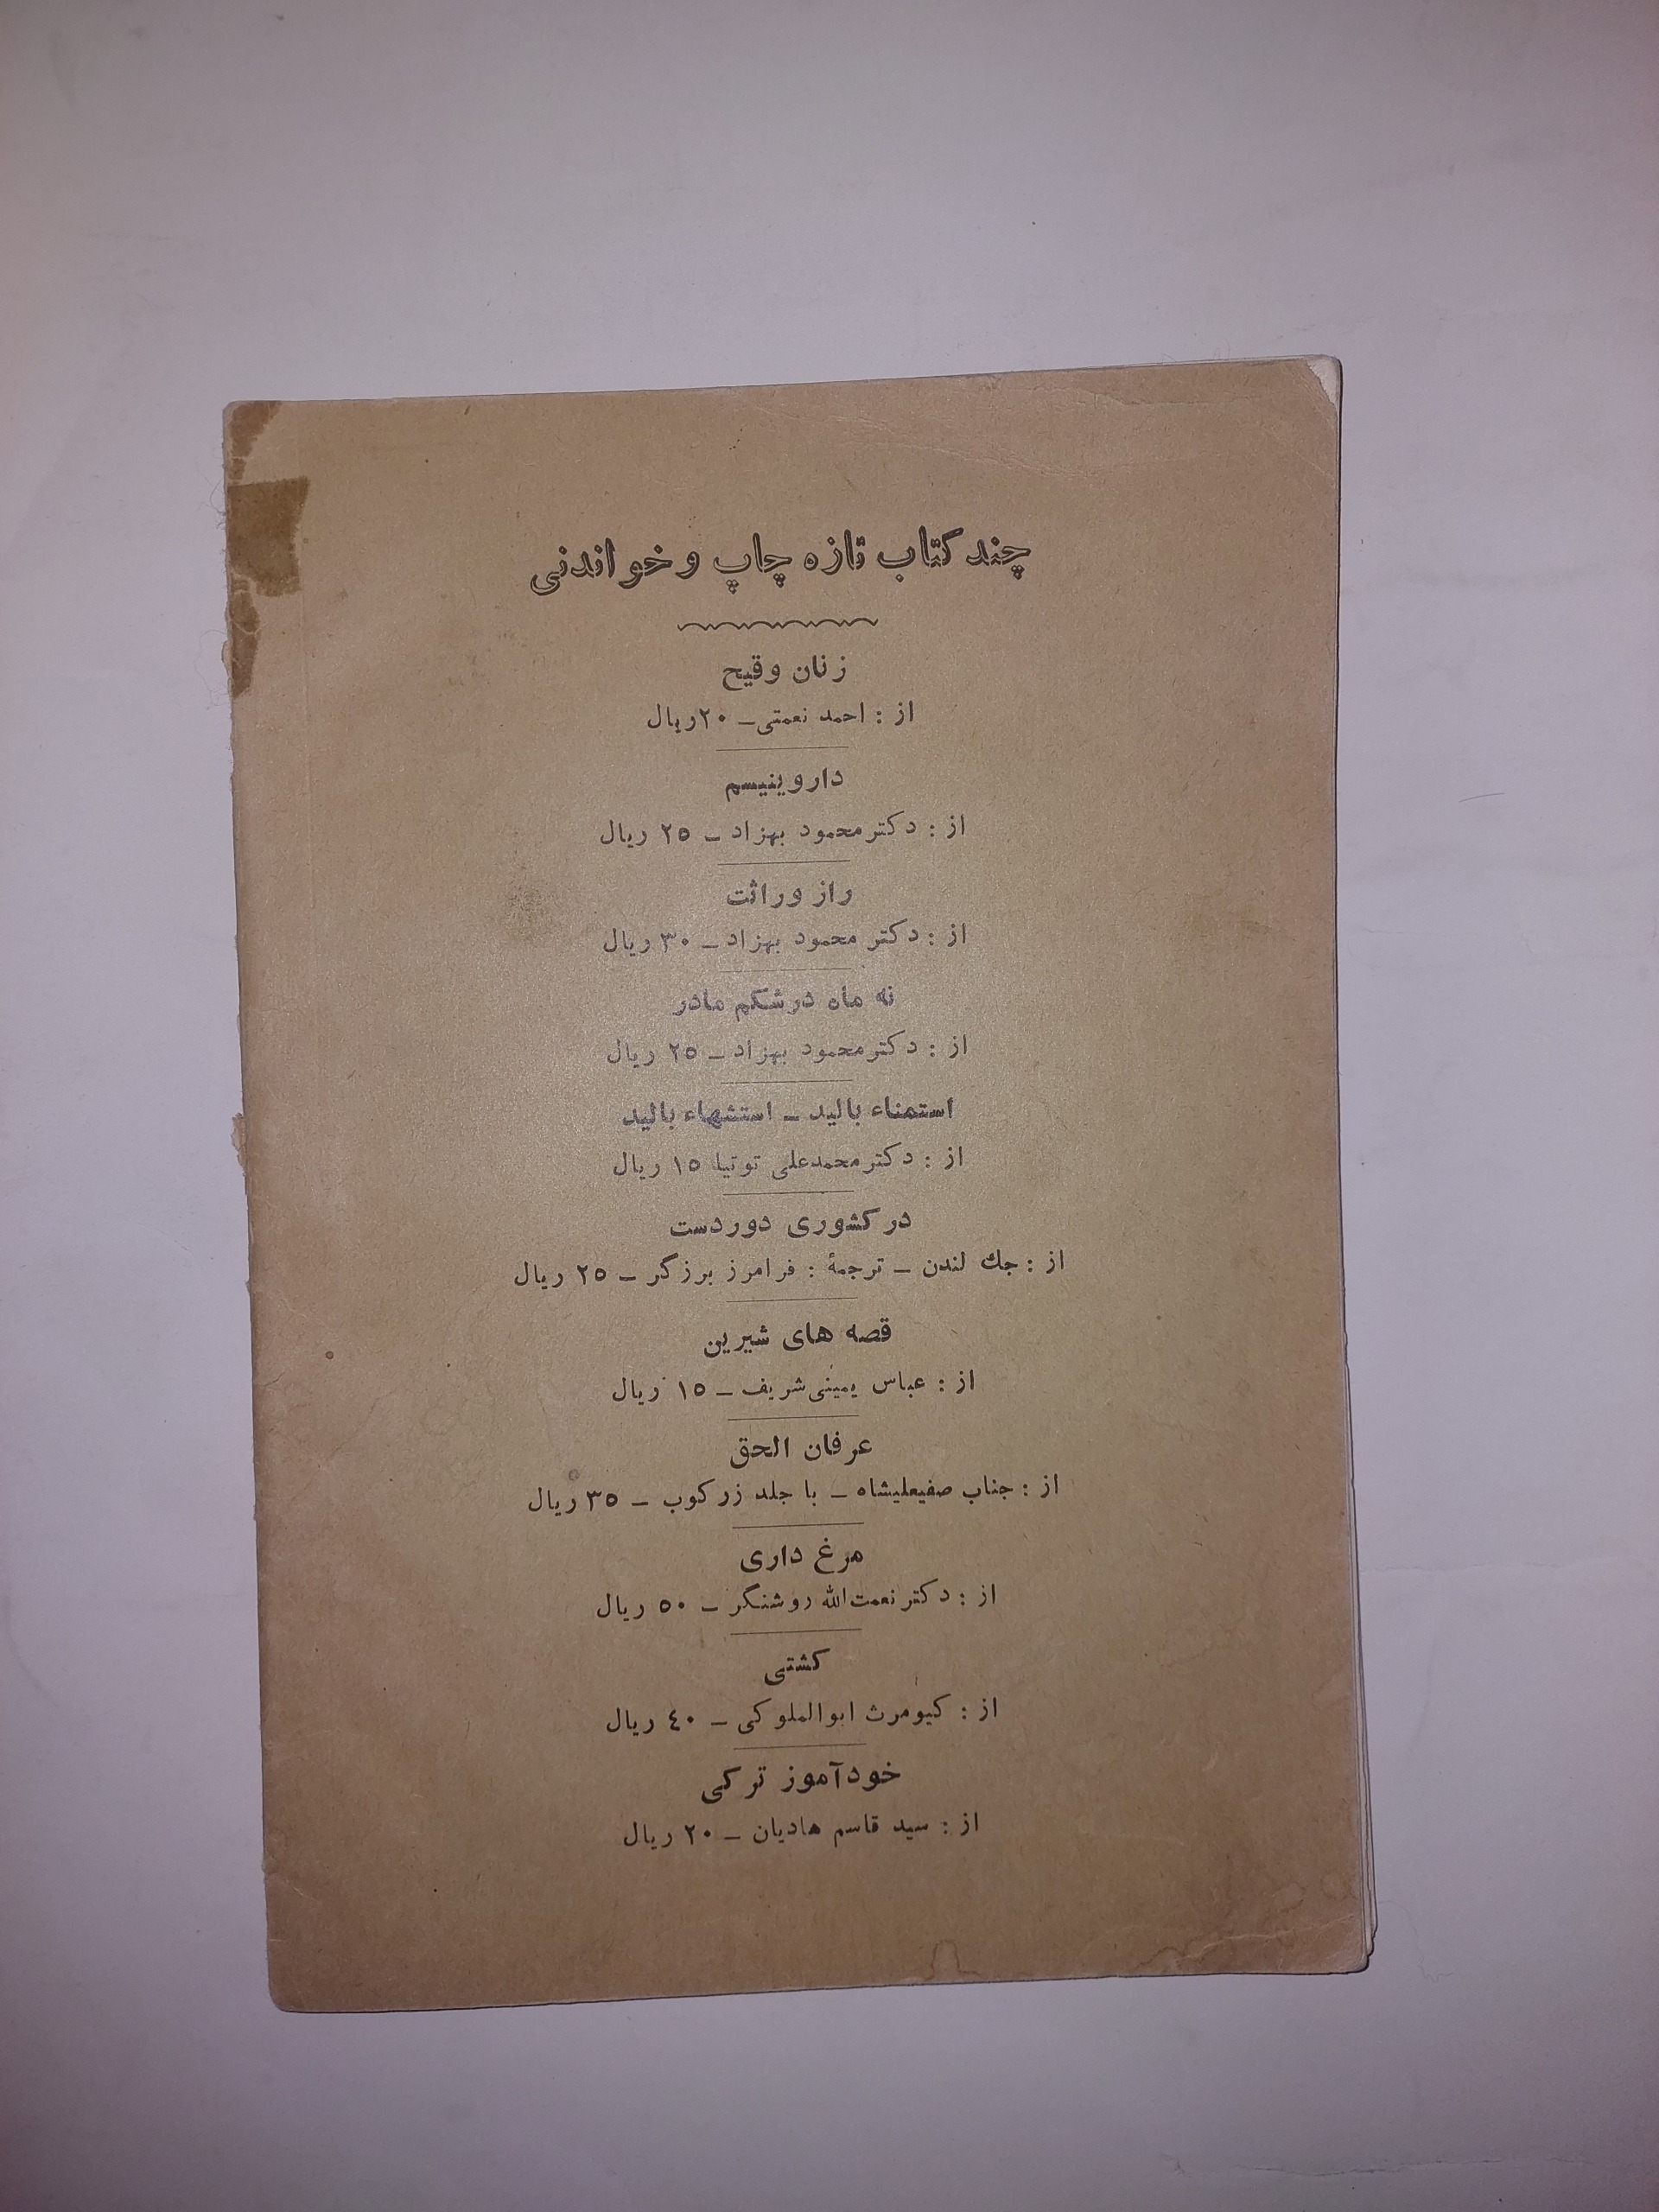 چند کتاب تازه چاپ و خواندنی
زنان وقیح
از : احمد نعمتی ـ ۲۰ ریال
داروینیسم
از : دکتر محمود بهزاد ـ ۲۵ ریال
راز وراثت
از : دکتر محمود بهزاد ـ ۳۰ ریال
نه ماه در شکم مادر
از : دکتر محمود بهزاد ـ ۲۵ ریال
استمناء بالید ـ استشهاء بالید
از : دکتر محمدعلی توتیا ۱۵ ریال
در کشوری دوردست
از : جك لندن ـ ترجمهٔ : فرامرز برزگر ـ ۲۵ ریال
قصه های شیرین
از : عباس یمینی شریف ـ ۱۵ ریال
عرفان الحق
از : جناب صفیعلیشاه ـ با جلد زرکوب ـ ۳۵ ریال
مرغ داری
از : دکتر نعمت‌الله روشنگر ـ ۵۰ ریال
کشتی
از : کیومرث ابوالملوکی ـ ٤۰ ریال
خودآموز ترکی
از : سید قاسم هادیان ـ ۲۰ ریال